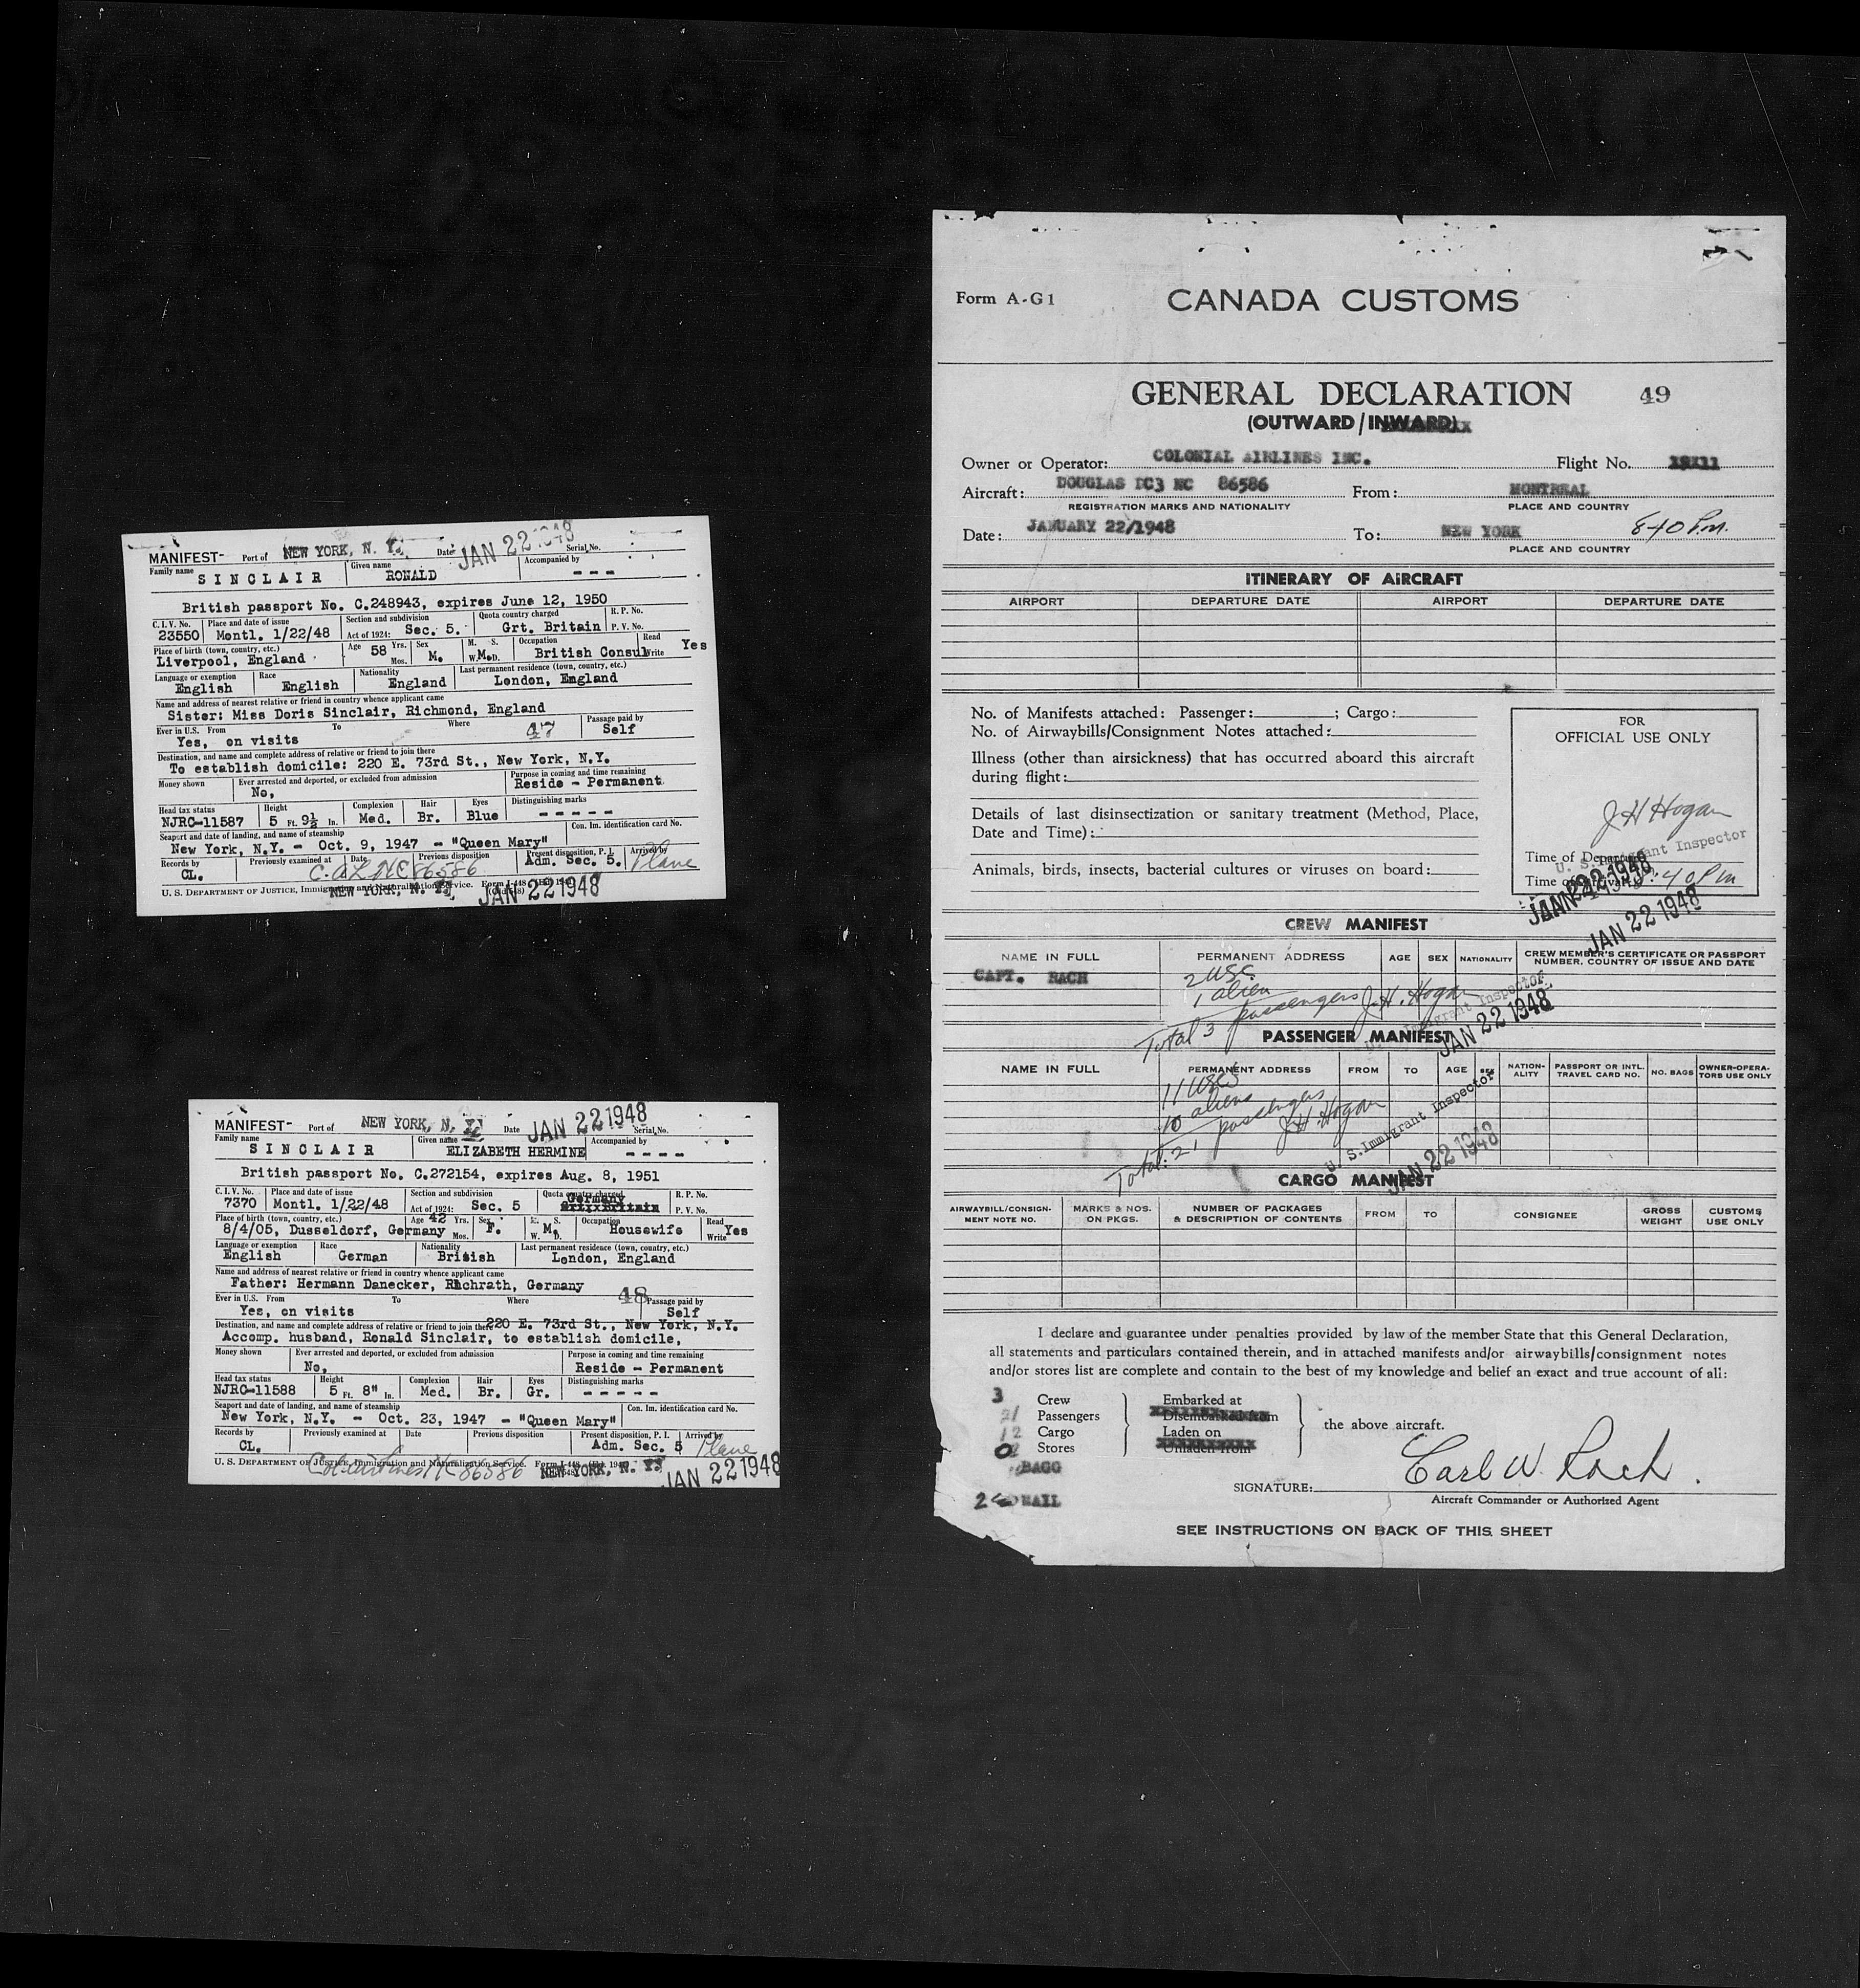 MANIFEST- Port of NEW YORK, N. Y. Date JAN 22 1948 Serial No.
Family name SINCLAIR Given name RONALD Accompanied by - - -
British passport No. C.248943, expires June 12, 1950
C. I. V. No. 23550 Place and date of issue Montl. 1/22/48 Section and subdivision Act of 1924: Sec. 5. Quota country charged Grt. Britain R. P. No. P. V. No.
Place of birth (town, country, etc.) Liverpool, England Age 58 Yrs. Mos. Sex M. M. S. W. D. M. Occupation British Consul Read Write Yes
Language or exemption English Race English Nationality England Last permanent residence (town, country, etc.) London, England
Name and address of nearest relative or friend in country whence applicant came
Sister: Miss Doris Sinclair, Richmond, England
Ever in U.S. From To Where Passage paid by
Yes, on visits 47 Self
Destination, and name and complete address of relative or friend to join there
To establish domicile: 220 E. 73rd St., New York, N.Y.
Money shown Ever arrested and deported, or excluded from admission No, Purpose in coming and time remaining Reside - Permanent
Head tax status NJRC-11587 Height 5 Ft. 9½ In. Complexion Med. Hair Br. Eyes Blue Distinguishing marks - - - - -
Seaport and date of landing, and name of steamship Con. Im. identification card No.
New York, N.Y. - Oct. 9, 1947 - "Queen Mary"
Records by CL. Previously examined at Date Previous disposition Present disposition, P. I. Adm. Sec. 5. Arrived by Plane
C.A.L NC 86586
U. S. DEPARTMENT OF JUSTICE, Immigration and Naturalization Service. Form I-448
NEW YORK, N. Y. JAN 22 1948
MANIFEST- Port of NEW YORK, N. Y. Date JAN 22 1948 Serial No.
Family name SINCLAIR Given name ELIZABETH HERMINE Accompanied by - - - -
British passport No. C.272154, expires Aug. 8, 1951
C. I. V. No. 7370 Place and date of issue Montl. 1/22/48 Section and subdivision Act of 1924: Sec. 5 Quota country charged Germany R. P. No. P. V. No.
Place of birth (town, country, etc.) 8/4/05, Dusseldorf, Germany Age 42 Yrs. Mos. Sex F. M. S. W. D. M. Occupation Housewife Read Write Yes
Language or exemption English Race German Nationality British Last permanent residence (town, country, etc.) London, England
Name and address of nearest relative or friend in country whence applicant came
Father: Hermann Danecker, Richrath, Germany
Ever in U.S. From To Where Passage paid by
Yes, on visits 48 Self
Destination, and name and complete address of relative or friend to join there 220 E. 73rd St., New York, N.Y.
Accomp. husband, Ronald Sinclair, to establish domicile,
Money shown Ever arrested and deported, or excluded from admission No, Purpose in coming and time remaining Reside - Permanent
Head tax status NJRC-11588 Height 5 Ft. 8" In. Complexion Med. Hair Br. Eyes Gr. Distinguishing marks - - - - -
Seaport and date of landing, and name of steamship Con. Im. identification card No.
New York, N.Y. - Oct. 23, 1947 - "Queen Mary"
Records by CL. Previously examined at Date Previous disposition Present disposition, P. I. Adm. Sec. 5 Arrived by Plane
U. S. DEPARTMENT OF JUSTICE, Immigration and Naturalization Service. Form I-448
Col. airlines NC 86586 NEW YORK, N. Y. JAN 22 1948
Form A-G1 CANADA CUSTOMS
GENERAL DECLARATION 49
(OUTWARD / INWARD)
Owner or Operator: COLONIAL AIRLINES INC. Flight No.
Aircraft: DOUGLAS DC3 NC 86586 From: MONTREAL
REGISTRATION MARKS AND NATIONALITY PLACE AND COUNTRY
Date: JANUARY 22/1948 To: NEW YORK 840 P.m.
PLACE AND COUNTRY
ITINERARY OF AIRCRAFT
AIRPORT DEPARTURE DATE AIRPORT DEPARTURE DATE
No. of Manifests attached: Passenger: ; Cargo:
No. of Airwaybills/Consignment Notes attached:
Illness (other than airsickness) that has occurred aboard this aircraft
during flight:
Details of last disinsectization or sanitary treatment (Method, Place,
Date and Time):
Animals, birds, insects, bacterial cultures or viruses on board:
FOR
OFFICIAL USE ONLY
J H Hogan
U. S. Immigrant Inspector
Time of Departure
Time of Arrival 8:40 Pm
JAN 22 1948
JAN 22 1948
CREW MANIFEST
NAME IN FULL PERMANENT ADDRESS AGE SEX NATIONALITY CREW MEMBER'S CERTIFICATE OR PASSPORT NUMBER, COUNTRY OF ISSUE AND DATE
CAPT. RACH
2 USC
1 alien
Total 3 passengers J. H. Hogan
Immigrant Inspector
JAN 22 1948
PASSENGER MANIFEST
NAME IN FULL PERMANENT ADDRESS FROM TO AGE SEX NATION-ALITY PASSPORT OR INTL. TRAVEL CARD NO. NO. BAGS OWNER-OPERA-TORS USE ONLY
11 USCS
10 aliens
Total: 21 passengers J H Hogan
U. S. Immigrant Inspector
JAN 22 1948
CARGO MANIFEST
AIRWAYBILL/CONSIGN-MENT NOTE NO. MARKS & NOS. ON PKGS. NUMBER OF PACKAGES & DESCRIPTION OF CONTENTS FROM TO CONSIGNEE GROSS WEIGHT CUSTOMS USE ONLY
I declare and guarantee under penalties provided by law of the member State that this General Declaration,
all statements and particulars contained therein, and in attached manifests and/or airwaybills/consignment notes
and/or stores list are complete and contain to the best of my knowledge and belief an exact and true account of all:
3 Crew Embarked at
21 Passengers Disembarked from
12 Cargo Laden on the above aircraft.
0 Stores Unladen from
BAGG
MAIL
SIGNATURE: Carl W. Rach
Aircraft Commander or Authorized Agent
SEE INSTRUCTIONS ON BACK OF THIS SHEET